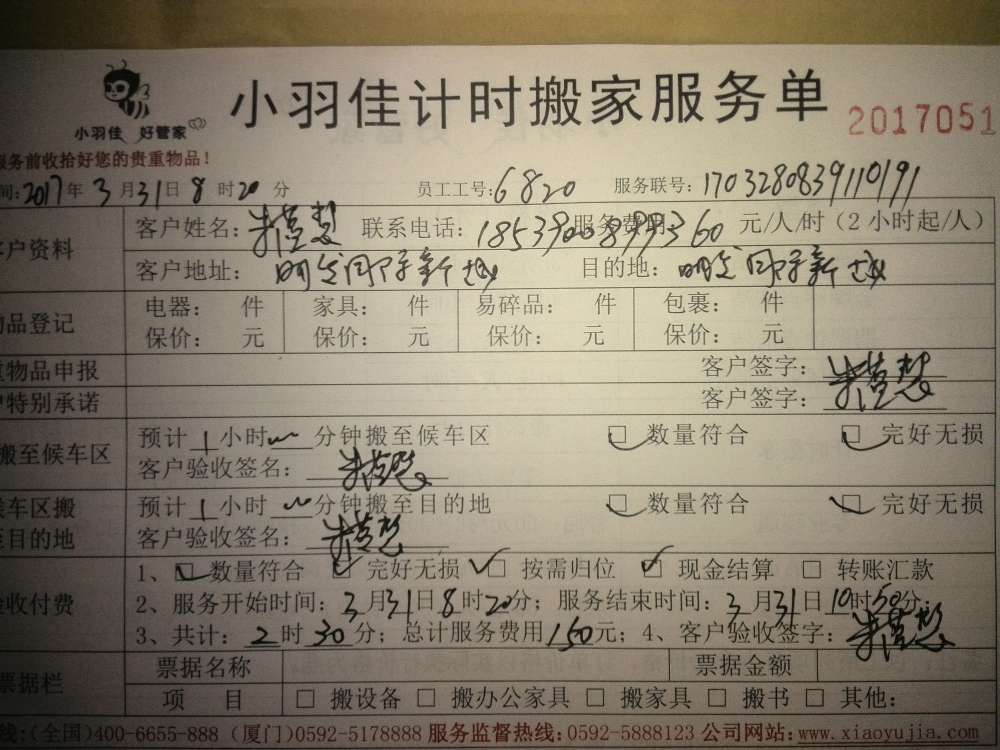 小羽佳计时搬家服务单
小羽佳 好管家
2017051
服务前收拾好您的贵重物品!
间:2017年3月31日8时20分 员工工号:6820 服务联号:1703280839110191
客户资料
客户姓名: 联系电话: 服务费用: 60 元/人/时(2小时起/人)
客户地址: 明发 新城 目的地: 明发 新城
物品登记
电器: 件 家具: 件 易碎品: 件 包裹: 件
保价: 元 保价: 元 保价: 元 保价: 元
重物品申报 客户签字:
户特别承诺 客户签字:
搬至候车区
预计1小时 分钟搬至候车区 □数量符合 □完好无损
客户验收签名:
候车区搬至目的地
预计1小时 分钟搬至目的地 □数量符合 □完好无损
客户验收签名:
验收付费
1、□数量符合 □完好无损 □按需归位 □现金结算 □转账汇款
2、服务开始时间:3月31日8时20分;服务结束时间:3月31日10时50分;
3、共计:2时30分;总计服务费用150元;4、客户验收签字:
票据栏
票据名称 票据金额
项目 □搬设备 □搬办公家具 □搬家具 □搬书 □其他:
线:(全国)400-6655-888 (厦门)0592-5178888 服务监督热线:0592-5888123 公司网站:www.xiaoyujia.com